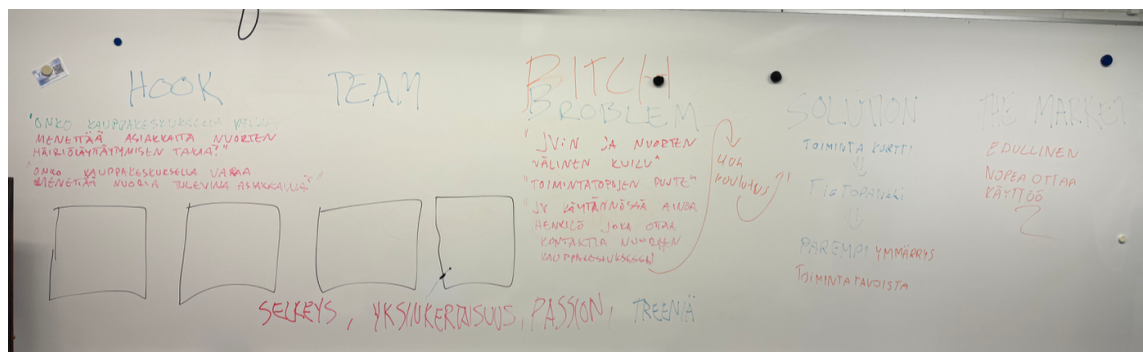 PITCH
HOOK
"ONKO KAUPPAKESKUKSELLA VARAA
MENETTÄÄ ASIAKKAITA NUORTEN
HÄIRIÖKÄYTTÄYTYMISEN TAKIA?"
"ONKO KAUPPAKESKUKSELLA VARAA
MENETTÄÄ NUORIA TULEVINA ASIAKKAINA"
TEAM
PROBLEM
"JV:N JA NUORTEN
VÄLINEN KUILU"
"TOIMINTATAPOJEN PUUTE"
"JV KÄYTÄNNÖSSÄ AINOA
HENKILÖ JOKA OTTAA
KONTAKTIA NUORIIN
KAUPPAKESKUKSESSA
KOULUTUS
SOLUTION
TOIMINTA KORTTI
TIETOPANKKI
PAREMPI YMMÄRRYS
TOIMINTATAVOISTA
THE MARKET
EDULLINEN
NOPEA OTTAA
KÄYTTÖÖ
SELKEYS, YKSINKERTAISUUS, PASSION, TREENIÄ